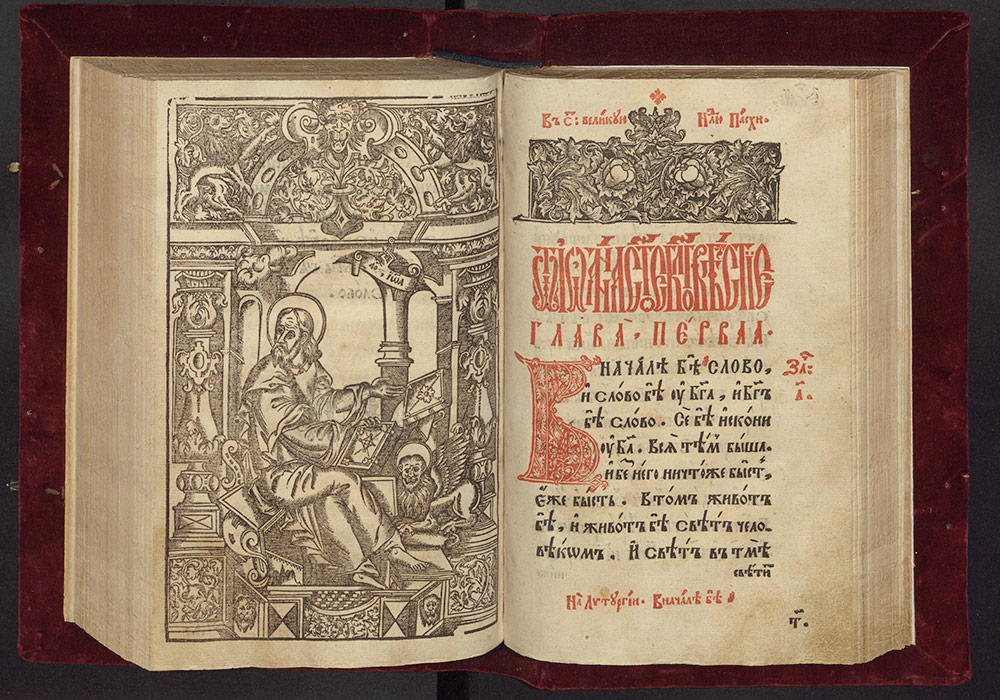 Въ С҃: великую Н҃лю Пасхи.
ГЛАВА̀, ПЕ́РВАꙖ.
ВНАЧА́ЛѢ БѢ̀ СЛОВО,
и҆ сло́во бѣ̀ ᲂу҆ бг҃а, и҆ бг҃ъ
бѣ̀ сло́во. Се бѣ̀ и҆скони
ᲂу҆ бг҃а. Всѧ̀ тѣ́мъ бы́ша.
и҆ беꙁ̾ него ничто́же бы́сть,
є҆́же бы́сть. В то́мъ живо́тъ
бѣ̀, и҆ живо́тъ бѣ̀ свѣ́тъ чело-
вѣ́кѡмъ. И҆ свѣ́тъ въ тмѣ̀
свѣ́тит
За҃:
а҃.
На Литургіи. Вначалѣ бѣ̀